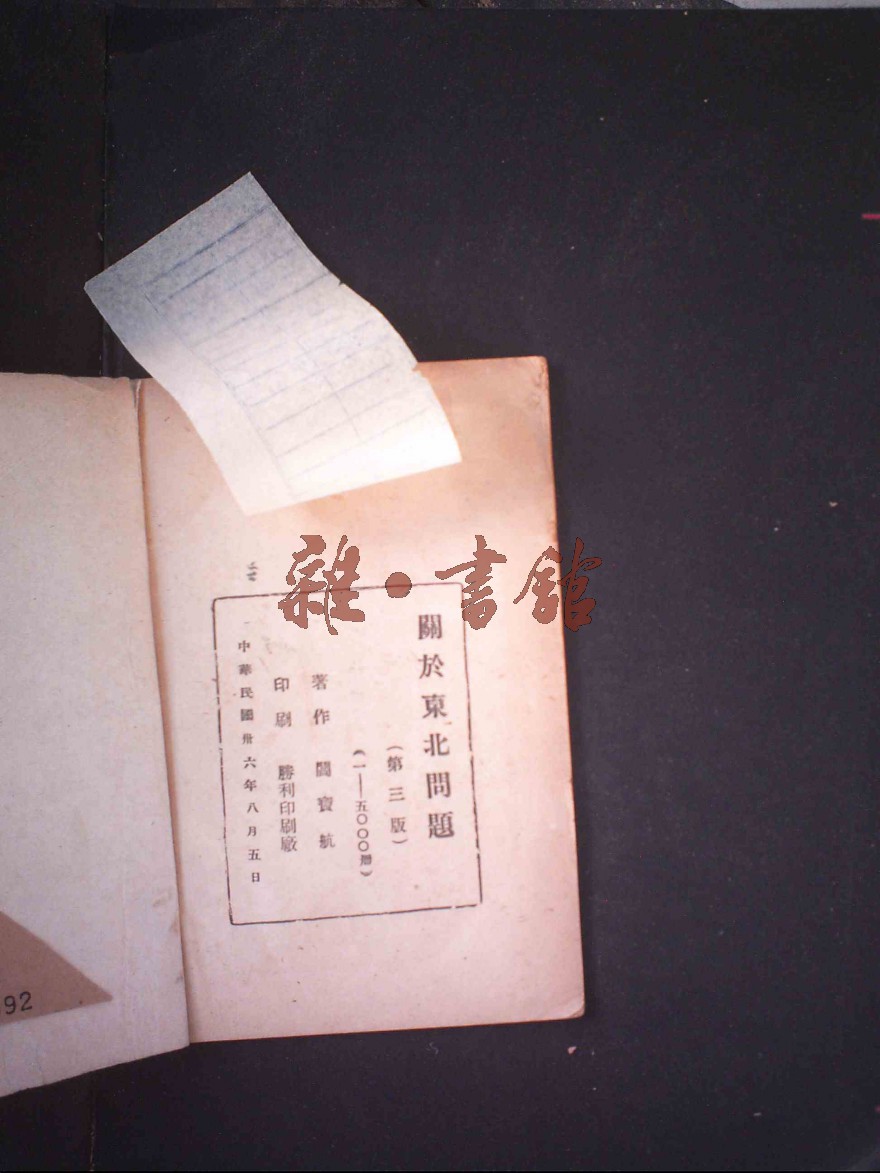 雜·書館
關於東北問題
（第三版）
（一——五〇〇〇冊）
著作 閻寶航
印刷 勝利印刷廠
中華民國卅六年八月五日
92